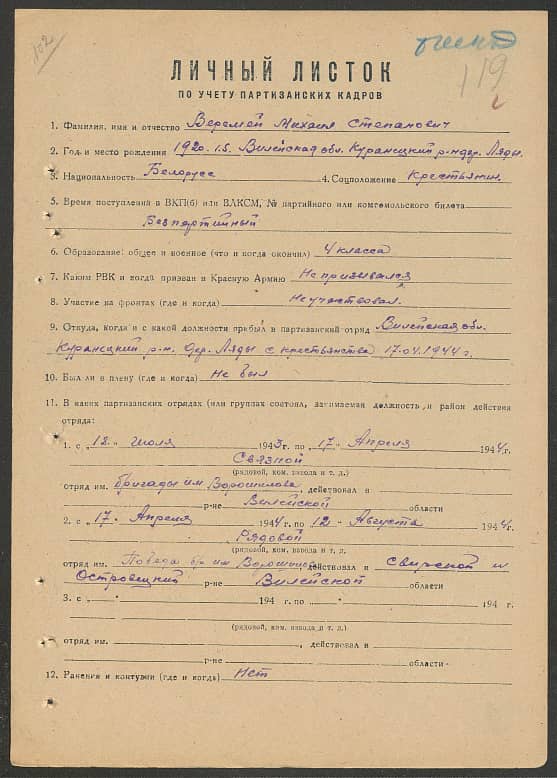 102
119
ЛИЧНЫЙ ЛИСТОК
ПО УЧЕТУ ПАРТИЗАНСКИХ КАДРОВ
1. Фамилия, имя и отчество Веремей Михаил Степанович
2. Год и место рождения 1920. 15. Вилейская обл. Куранецкий р-н дер. Ляды.
3. Национальность Белорусс 4. Соцположение Крестьянин.
5. Время поступлений в ВКП(б) или ВЛКСМ, № партийного или комсомольского билета
Безпартийный
6. Образование: общее и военное (что и когда окончил) 4 класса
7. Каким РВК и когда призван в Красную Армию Не призывался
8. Участие на фронтах (где и когда) Не участвовал.
9. Откуда, когда и с какой должности прибыл в партизанский отряд Вилейская обл.
Куранецкий р-н. дер. Ляды с крестьянства 17.04.1944 г.
10. Был ли в плену (где и когда) Не был
11. В каких партизанских отрядах (или группах состоял, занимаемая должность и район действия
отряда:
1. с „12 „ Июля 1943 г. по „17 „ Апреля 1944 г.
Связной
(рядовой, ком. взвода и т. д.)
отряд им. бригады им Ворошилова действовал в
р-не Вилейской области
2. с „17. „ Апреля 1944 г. по „12 „ Августа 1944 г.
Рядовой
(рядовой, ком. взвода и т. д.
отряд им. Победа бр. им Ворошилова действовал в Свирской и
Островецкий р-не Вилейской области
3. с „ „ 194 г. по „ 194 г.
(рядовой, ком. взвода и т. д.)
отряд им. , действовал в
р-не области
12. Ранения и контузии (где и когда) Нет